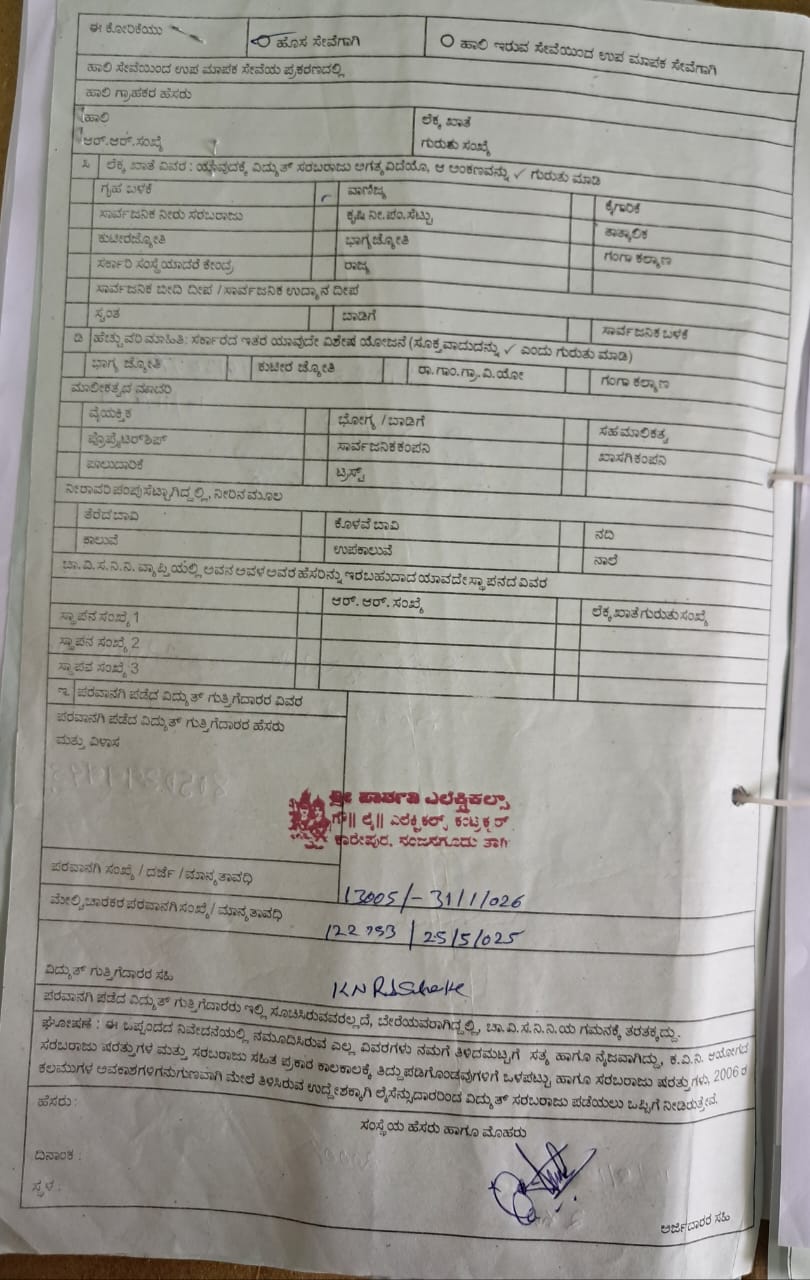 ಈ ಕೋರಿಕೆಯು
ಹೊಸ ಸೇವೆಗಾಗಿ
ಹಾಲಿ ಇರುವ ಸೇವೆಯಿಂದ ಉಪ ಮಾಪಕ ಸೇವೆಗಾಗಿ
ಹಾಲಿ ಸೇವೆಯಿಂದ ಉಪ ಮಾಪಕ ಸೇವೆಯ ಪ್ರಕರಣದಲ್ಲಿ
ಹಾಲಿ ಗ್ರಾಹಕರ ಹೆಸರು
ಹಾಲಿ
ಆರ್.ಆರ್.ಸಂಖ್ಯೆ
ಲೆಕ್ಕ ಖಾತೆ
ಗುರುತು ಸಂಖ್ಯೆ
ಸಿ ಲೆಕ್ಕ ಖಾತೆ ವಿವರ : ಯಾವುದಕ್ಕೆ ವಿದ್ಯುತ್ ಸರಬರಾಜು ಅಗತ್ಯವಿದೆಯೊ, ಆ ಅಂಕಣವನ್ನು ✓ ಗುರುತು ಮಾಡಿ
ಗೃಹ ಬಳಕೆ ವಾಣಿಜ್ಯ ಕೈಗಾರಿಕೆ
ಸಾರ್ವಜನಿಕ ನೀರು ಸರಬರಾಜು ಕೃಷಿ ನೀ.ಪಂ.ಸೆಟ್ಟು ತಾತ್ಕಾಲಿಕ
ಕುಟೀರಜ್ಯೋತಿ ಭಾಗ್ಯಜ್ಯೋತಿ ಗಂಗಾ ಕಲ್ಯಾಣ
ಸರ್ಕಾರಿ ಸಂಸ್ಥೆಯಾದರೆ ಕೇಂದ್ರ ರಾಜ್ಯ
ಸಾರ್ವಜನಿಕ ಬೀದಿ ದೀಪ /ಸಾರ್ವಜನಿಕ ಉದ್ಯಾನ ದೀಪ
ಸ್ವಂತ ಬಾಡಿಗೆ ಸಾರ್ವಜನಿಕ ಬಳಕೆ
ಡಿ ಹೆಚ್ಚುವರಿ ಮಾಹಿತಿ: ಸರ್ಕಾರದ ಇತರ ಯಾವುದೇ ವಿಶೇಷ ಯೋಜನೆ (ಸೂಕ್ತವಾದುದನ್ನು ✓ ಎಂದು ಗುರುತು ಮಾಡಿ)
ಭಾಗ್ಯ ಜ್ಯೋತಿ ಕುಟೀರ ಜ್ಯೋತಿ ರಾ.ಗಾಂ.ಗ್ರಾ.ವಿ.ಯೋ ಗಂಗಾ ಕಲ್ಯಾಣ
ಮಾಲೀಕತ್ವದ ಮಾದರಿ
ವೈಯಕ್ತಿಕ ಭೋಗ್ಯ /ಬಾಡಿಗೆ ಸಹ ಮಾಲಿಕತ್ವ
ಪ್ರೊಪ್ರೈಟರ್‌ಶಿಪ್ ಸಾರ್ವಜನಿಕ ಕಂಪನಿ ಖಾಸಗಿ ಕಂಪನಿ
ಪಾಲುದಾರಿಕೆ ಟ್ರಸ್ಟ್
ನೀರಾವರಿ ಪಂಪುಸೆಟ್ಟಾಗಿದ್ದಲ್ಲಿ, ನೀರಿನ ಮೂಲ
ತೆರೆದ ಬಾವಿ ಕೊಳವೆ ಬಾವಿ ನದಿ
ಕಾಲುವೆ ಉಪಕಾಲುವೆ ನಾಲೆ
ಚಾ.ವಿ.ಸ.ನಿ.ನಿ. ವ್ಯಾಪ್ತಿಯಲ್ಲಿ ಅವನ ಅವಳ ಅವರ ಹೆಸರಿನ್ನು ಇರಬಹುದಾದ ಯಾವದೇ ಸ್ಥಾಪನದ ವಿವರ
ಆರ್. ಆರ್. ಸಂಖ್ಯೆ ಲೆಕ್ಕ ಖಾತೆ ಗುರುತು ಸಂಖ್ಯೆ
ಸ್ಥಾಪನ ಸಂಖ್ಯೆ 1
ಸ್ಥಾಪನ ಸಂಖ್ಯೆ 2
ಸ್ಥಾಪನ ಸಂಖ್ಯೆ 3
ಇ. ಪರವಾನಗಿ ಪಡೆದ ವಿದ್ಯುತ್ ಗುತ್ತಿಗೆದಾರರ ವಿವರ
ಪರವಾನಗಿ ಪಡೆದ ವಿದ್ಯುತ್ ಗುತ್ತಿಗೆದಾರರ ಹೆಸರು
ಮತ್ತು ವಿಳಾಸ
ಶ್ರೀ ಪಾರ್ವತಿ ಎಲೆಕ್ಟ್ರಿಕಲ್ಸ್
ಗೌ|| ಲೈ|| ಎಲೆಕ್ಟ್ರಿಕಲ್ಸ್ ಕಂಟ್ರಕ್ಟರ್
ಕಾರೇಪುರ, ನಂಜನಗೂಡು ತಾಗಿ
ಪರವಾನಗಿ ಸಂಖ್ಯೆ / ದರ್ಜೆ /ಮಾನ್ಯತಾವಧಿ
13005/- 31/1/026
ಮೇಲ್ವಿಚಾರಕರ ಪರವಾನಗಿ ಸಂಖ್ಯೆ/ ಮಾನ್ಯತಾವಧಿ
122793 / 25/5/025
ವಿದ್ಯುತ್ ಗುತ್ತಿಗೆದಾರರ ಸಹಿ
ಪರವಾನಗಿ ಪಡೆದ ವಿದ್ಯುತ್ ಗುತ್ತಿಗೆದಾರರು ಇಲ್ಲಿ ಸೂಚಿಸಿರುವವರಲ್ಲದೆ, ಬೇರೆಯವರಾಗಿದ್ದಲ್ಲಿ, ಚಾ.ವಿ.ಸ.ನಿ.ನಿ.ಯ ಗಮನಕ್ಕೆ ತರತಕ್ಕದ್ದು.
ಘೋಷಣೆ : ಈ ಒಪ್ಪಂದದ ನಿವೇದನೆಯಲ್ಲಿ ನಮೂದಿಸಿರುವ ಎಲ್ಲ ವಿವರಗಳು ನಮಗೆ ತಿಳಿದಮಟ್ಟಗೆ ಸತ್ಯ ಹಾಗೂ ನೈಜವಾಗಿದ್ದು, ಕ.ವಿ.ನಿ. ಆಯೋಗದ
ಸರಬರಾಜು ಷರತ್ತುಗಳ ಮತ್ತು ಸರಬರಾಜು ಸಹಿತ ಪ್ರಕಾರ ಕಾಲಕಾಲಕ್ಕೆ ತಿದ್ದುಪಡಿಗೊಂಡವುಗಳಿಗೆ ಒಳಪಟ್ಟು ಹಾಗೂ ಸರಬರಾಜು ಷರತ್ತುಗಳು, 2006 ರ
ಕಲಮುಗಳ ಅವಕಾಶಗಳಿಗನುಗುಣವಾಗಿ ಮೇಲೆ ತಿಳಿಸಿರುವ ಉದ್ದೇಶಕ್ಕಾಗಿ ಲೈಸೆನ್ಸುದಾರರಿಂದ ವಿದ್ಯುತ್ ಸರಬರಾಜು ಪಡೆಯಲು ಒಪ್ಪಿಗೆ ನೀಡಿರುತ್ತೇವೆ.
ಹೆಸರು :
ಸಂಸ್ಥೆಯ ಹೆಸರು ಹಾಗೂ ಮೊಹರು
ದಿನಾಂಕ :
ಸ್ಥಳ :
ಅರ್ಜಿದಾರರ ಸಹಿ